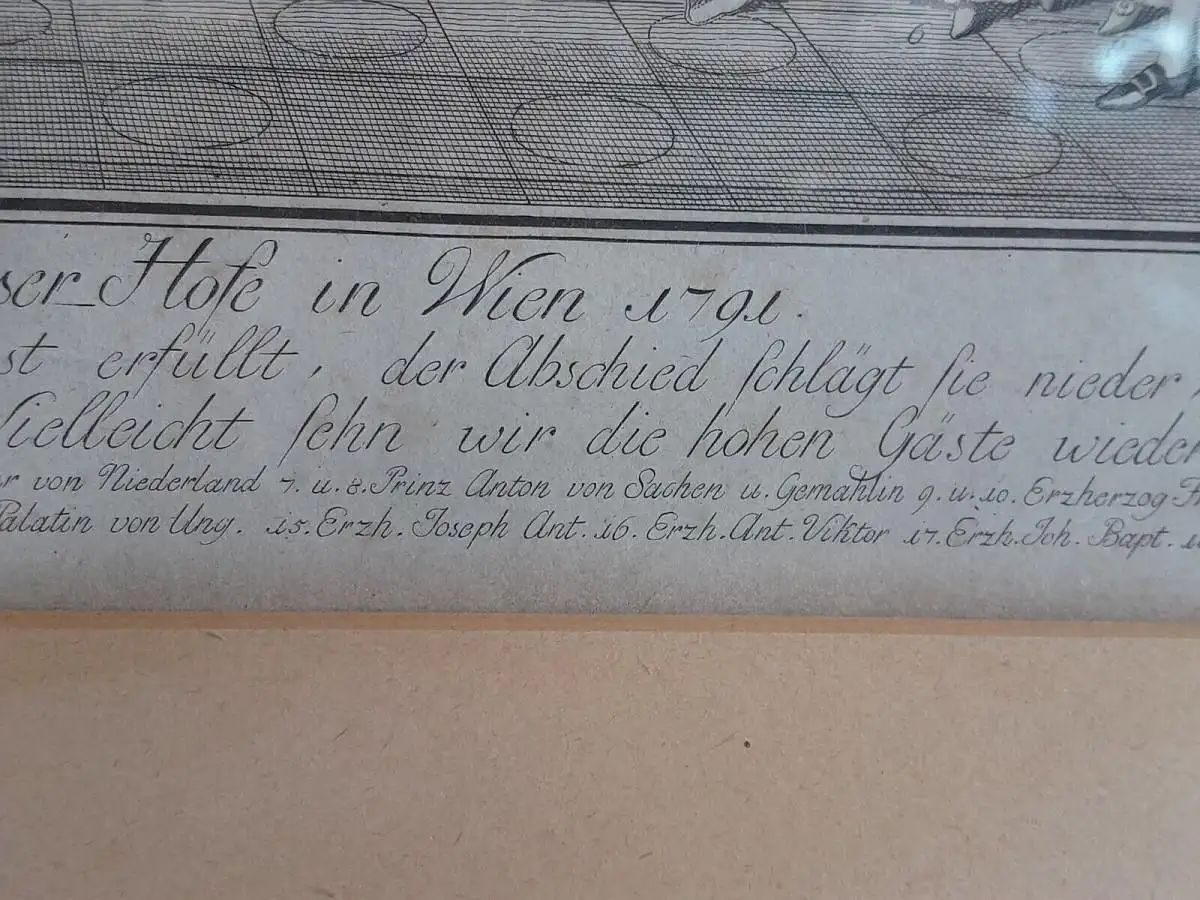 6
ser_Hofe in Wien 1791.
st erfüllt, der Abschied ſchlägt ſie nieder,
Vielleicht ſehn wir die hohen Gäste wieder
r von Niederland 7. u. 8. Prinz Anton von Sachen u. Gemahlin 9. u. 10. Erzherzog F
Palatin von Ung. 15. Erzh. Joseph Ant. 16. Erzh. Ant. Viktor 17. Erzh. Joh. Bapt. 1